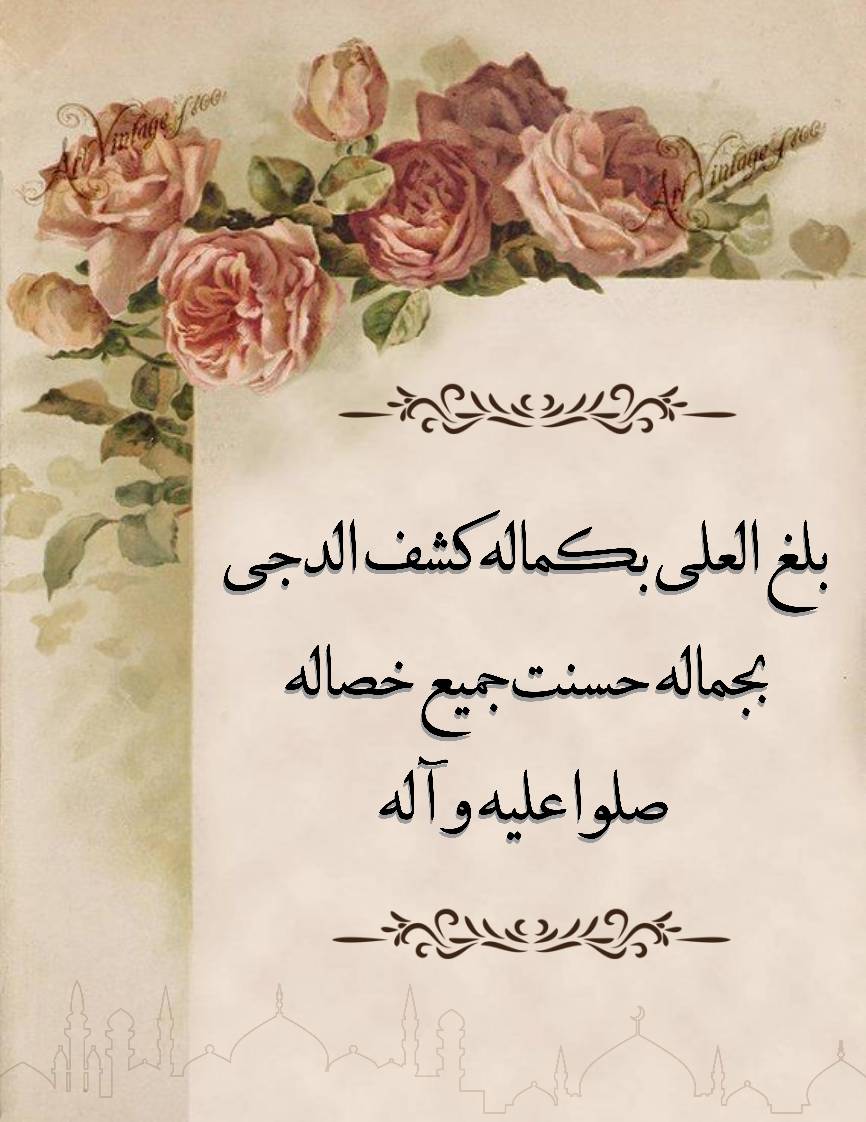 Art Vintage f100
Art Vintage f100
بلغ العلی بکماله کشف الدجی
بجماله حسنت جمیع خصاله
صلوا علیه و آله